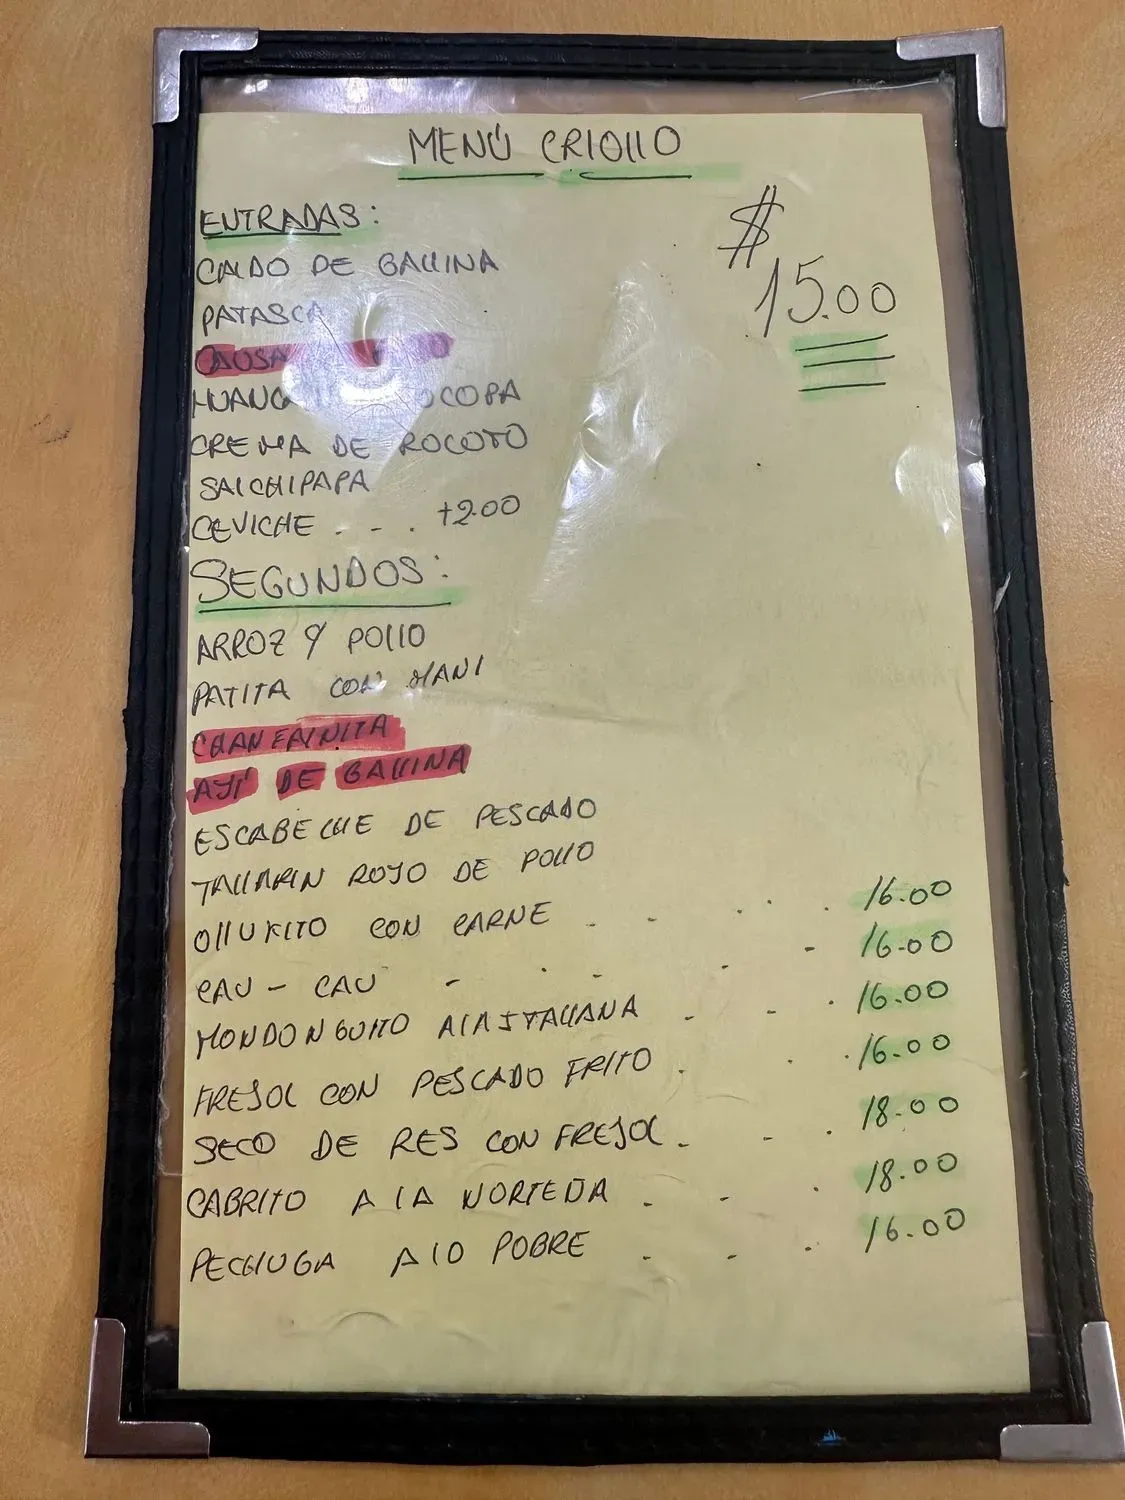 MENÚ CRIOLLO
$ 15.00
ENTRADAS:
CALDO DE GALLINA
PATASCA
CAUSA
OCOPA
CREMA DE ROCOTO
SALCHIPAPA
CEVICHE . - . +2.00
SEGUNDOS:
ARROZ Y POLLO
PATITA CON MANI
CHANFAINITA
AJÍ DE GALLINA
ESCABECHE DE PESCADO
TALLARIN ROJO DE POLLO
OLLUKITO CON CARNE . - . . . 16.00
CAU - CAU - . - - - 16.00
MONDONGUITO A LA ITALIANA - - . 16.00
FREJOL CON PESCADO FRITO . . . 16.00
SECO DE RES CON FREJOL . - . 18.00
CABRITO A LA NORTEÑA . - . 18.00
PECHUGA A LO POBRE . - . 16.00